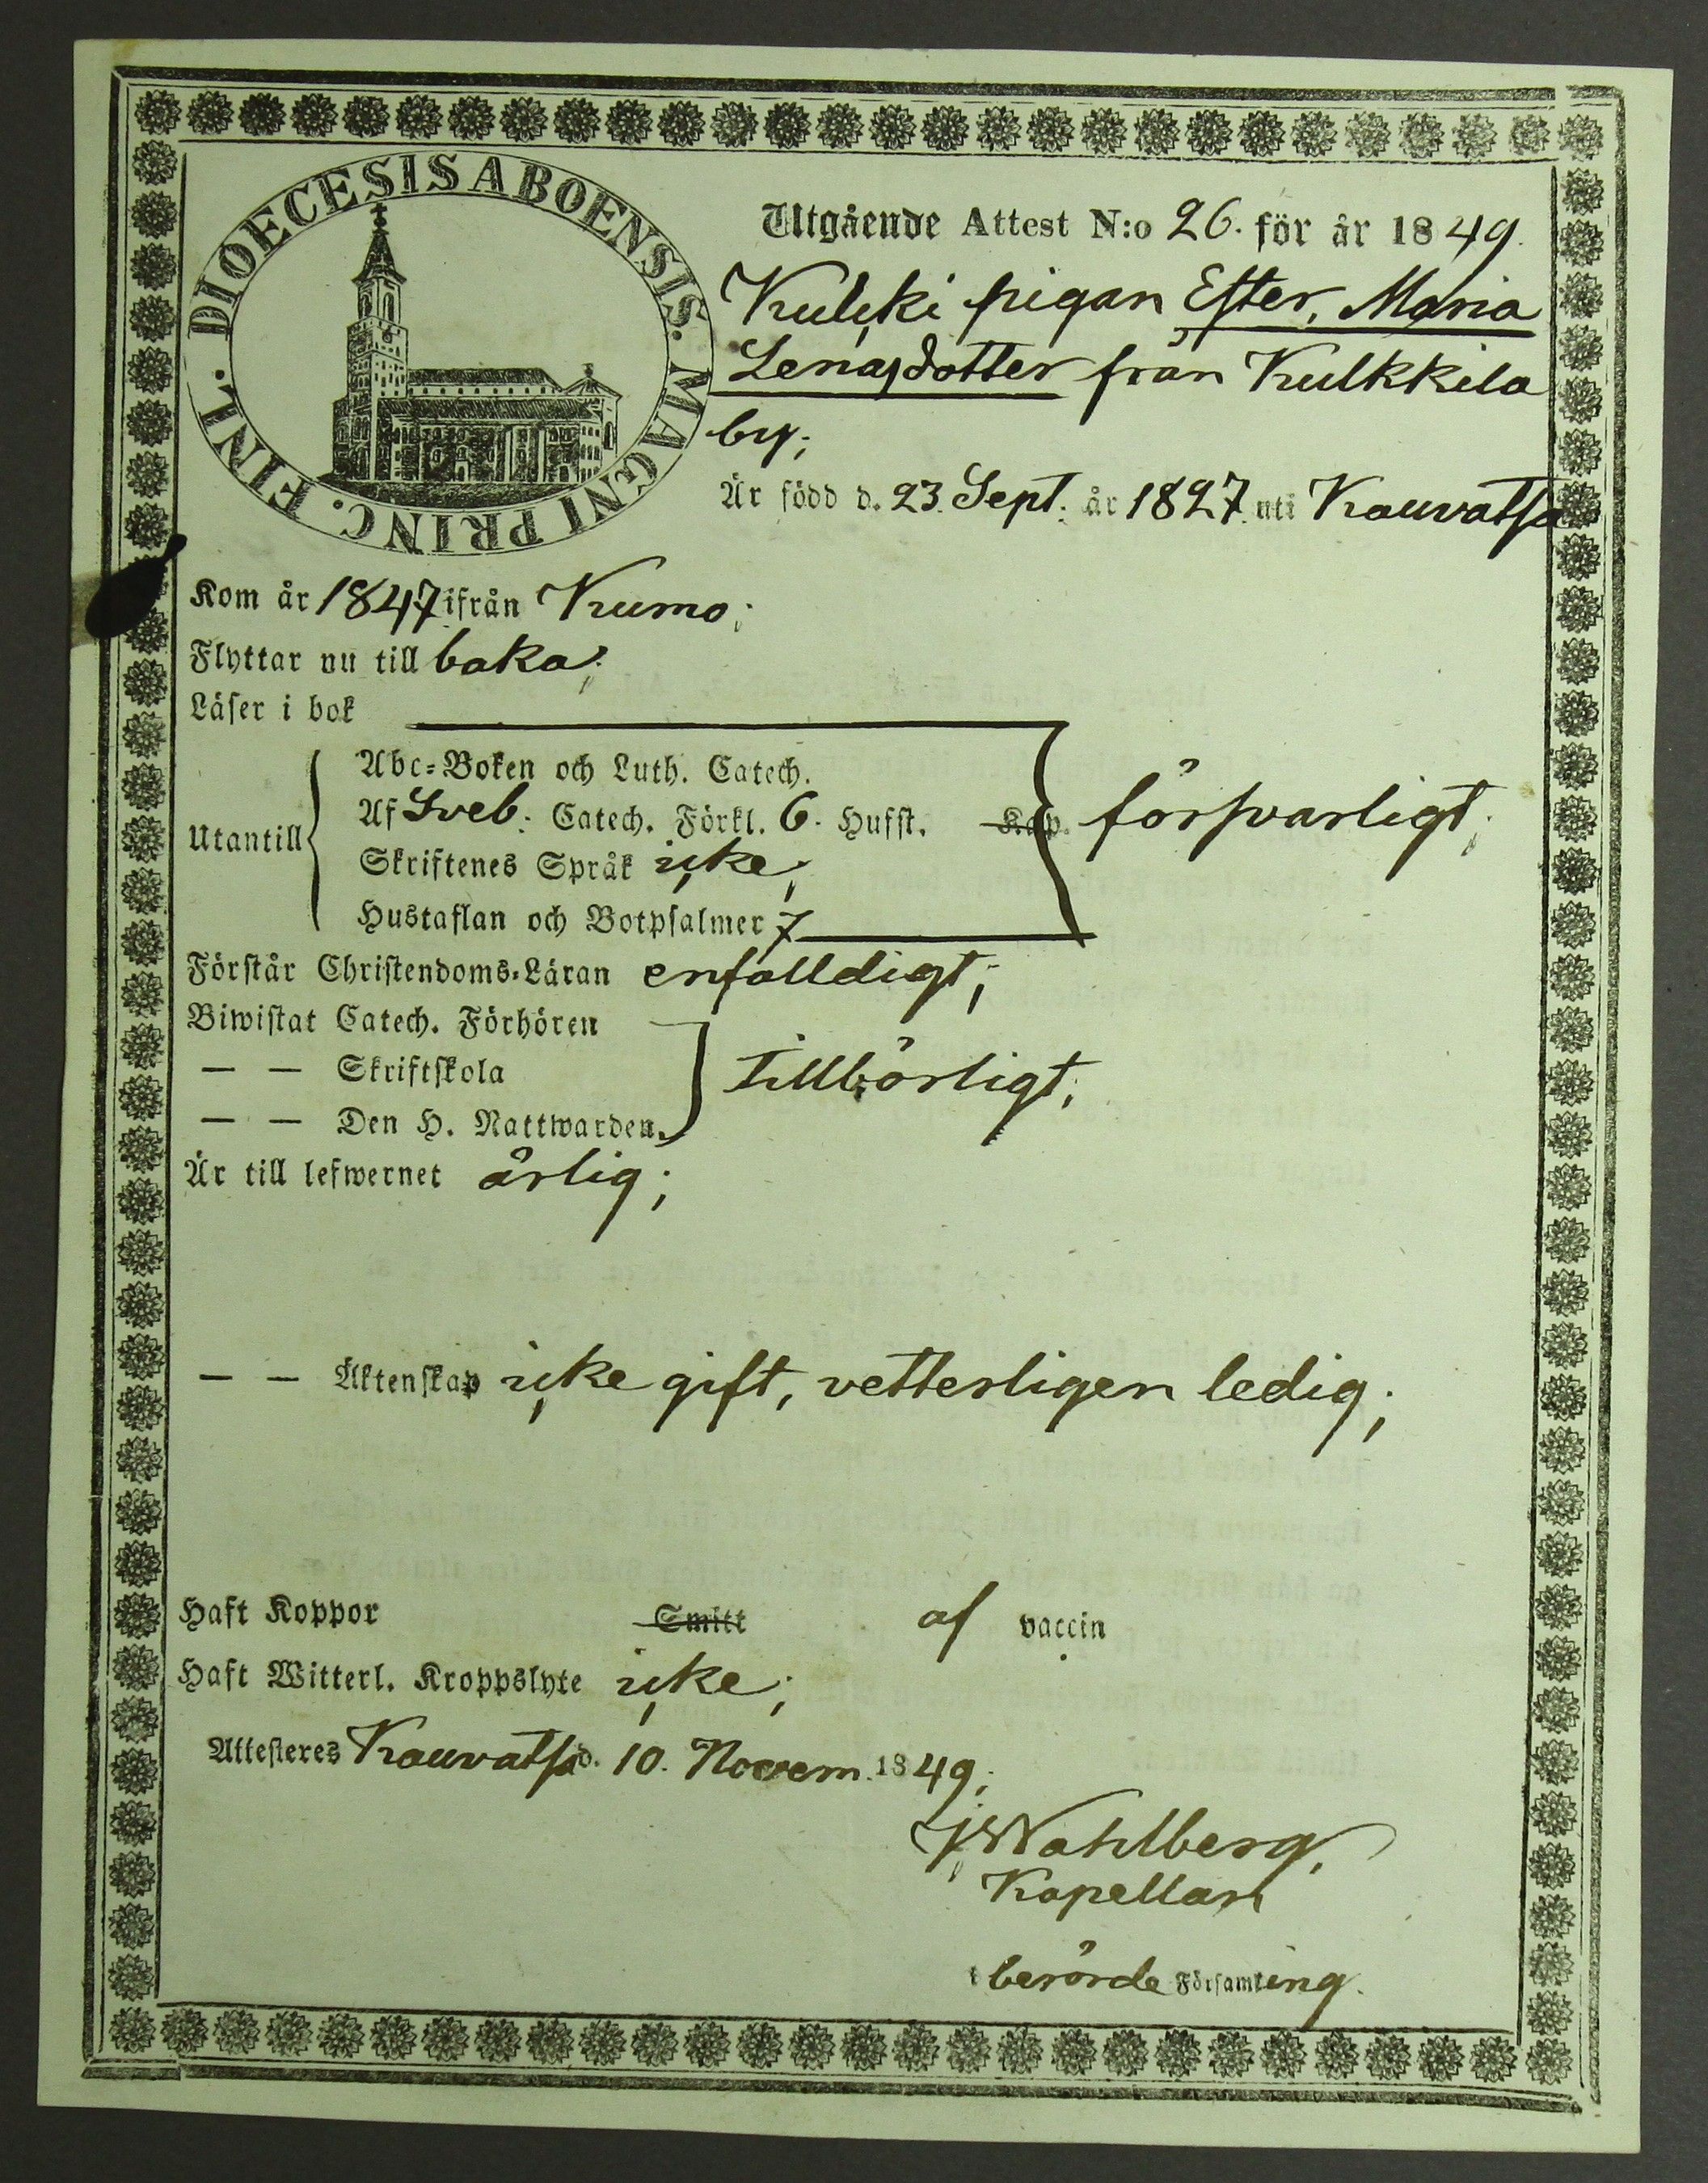 DIOECESIS ABOENSIS. MAGNI PRINC. FINL.
Utgående Attest N:o 26. för år 1849.
Kulcki pigan Ester, Maria
Lenasdotter från Kulkkila
by;
Är född d. 23. Sept. år 1827 uti Kauvatsa
Kom år 1847 ifrån Kumo;
Flyttar nu till baka;
Läser i bok
Utantill
Abc-Boken och Luth. Catech.
Af Sveb. Catech. Förkl. 6. Hufst. Kap. försvarligt;
Skriftenes Språk icke;
Hustaflan och Botpsalmer 7
Förstår Christendoms-Läran enfalldigt;
Biwistat Catech. Förhören
— — Skriftskola tillbörligt;
— — Den H. Nattwarden.
Är till lefwernet ärlig;
— — Äktenskap icke gift, vetterligen ledig;
Haft Koppor Smitt af vaccin
Haft Witterl. Kroppslyte icke;
Attesteres Kauvatsa d. 10. Novem. 1849;
Wahlberg,
Kapellan
i berörde Församling.